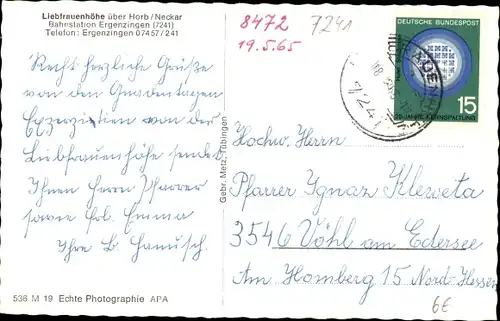 Liebfrauenhöhe über Horb/Neckar
Bahnstation Ergenzingen (7241)
Telefon: Ergenzingen 07457/241
8472 7241
19.5.65
DEUTSCHE BUNDESPOST
15
25 JAHRE KERNSPALTUNG
724
Recht herzliche Grüße
von den Gnadentagen
Exerzitien von der
Liebfrauenhöhe sendet
Ihnen Herrn Pfarrer
sowie Frl. Emma
Ihre B. Hanusch.
Gebr. Metz, Tübingen
Hochw. Herrn
Pfarrer Ignaz Kleweta
3546 Vöhl am Edersee
Am Homberg 15 Nord-Hessen
6€
536 M 19 Echte Photographie APA